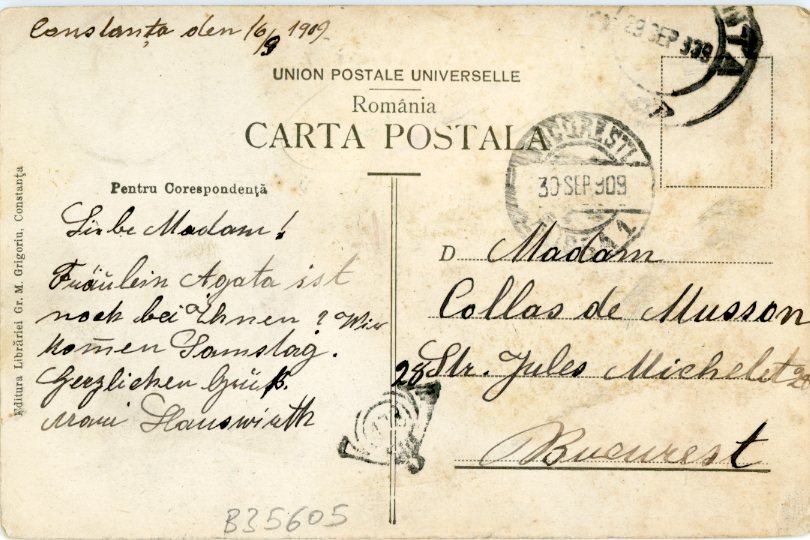 Constanța den 16/9 1909
29 SEP 909
NTA
UNION POSTALE UNIVERSELLE
România
CARTA POSTALA
BUCUREȘTI
30 SEP 909
Editura Librăriei Gr. M. Grigoriu, Constanța
Pentru Corespondență
Liebe Madam!
Fräulein Agata ist
noch bei Ihnen? Wir
kom̄en Samstag.
Herzlichen Gruß.
Mari Hauswirth
D Madam
Collas de Musson
28 Str. Jules Michelet
Bucurest
B35605